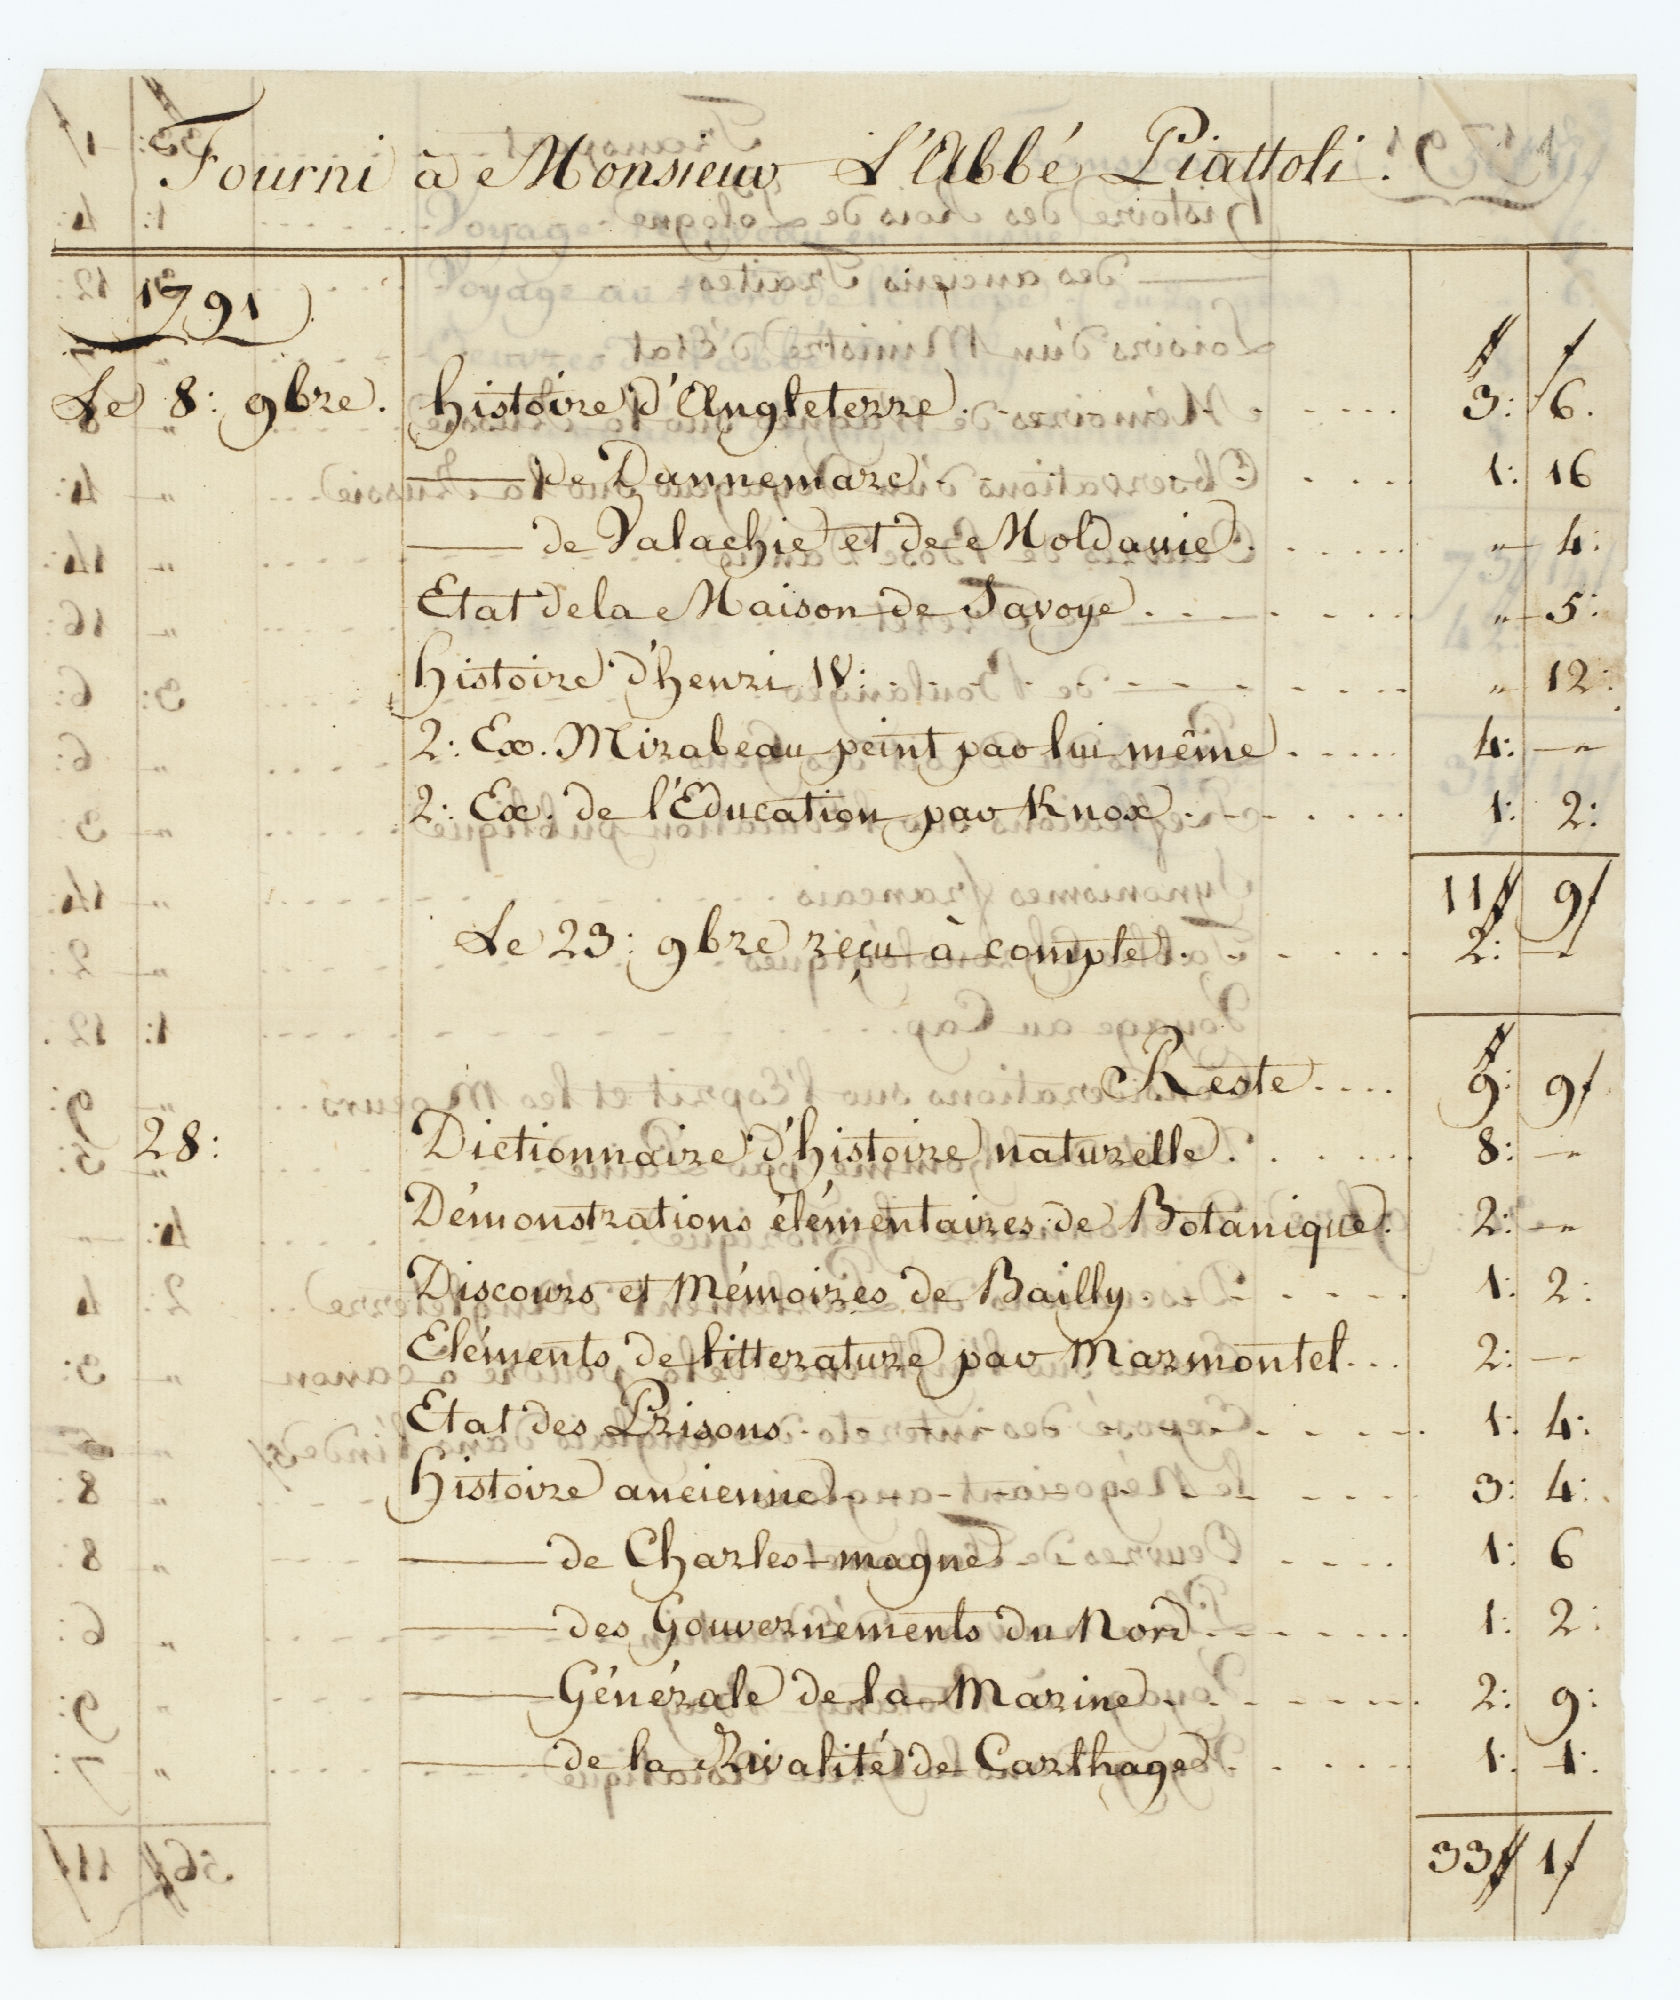 Fourni à Monsieur L'Abbé Piattoli.
1791
Le 8: 9bre. histoire d'Angleterre 3: 6.
— de Dannemarc 1: 16
— de Valachie et de Moldavie „ 4:
Etat de la Maison de Savoye „ 5:
histoire d'henri IV: „ 12:
2: Ex. Mirabeau peint par lui même 4: —„
2: Ex. de l'Education par Knox 1: 2:
11# 9f
Le 23: 9bre reçu à compte 2: —„
Reste 9: 9f
28: Dictionnaire d'histoire naturelle 8: —„
Démonstrations élémentaires de Botanique 2: —„
Discours et Mémoires de Bailly 1: 2:
Eléments de litterature par Marmontel 2: —„
Etat des Prisons 1: 4:
histoire ancienne 3: 4:
— de Charles-magne 1: 6
— des Gouvernéments du Nord 1: 2:
— Générale de la Marine 2: 9:
— de la Rivalité de Carthage 1: 1:
33# 1f